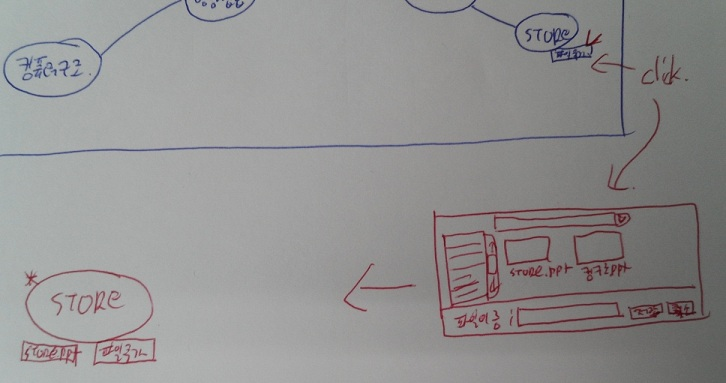 컴퓨터구조
STORE
파일추가
click.
STORE.ppt
파일이름 :
*
STORE
STORE.ppt 파일추가